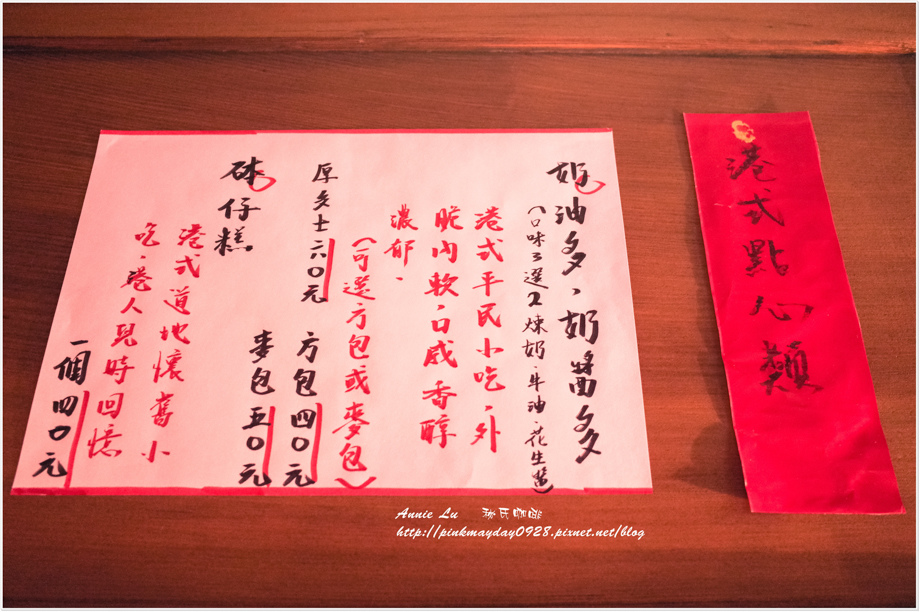 港式點心類
奶油多、奶醬多
(口味3選2煉奶、牛油、花生醬)
港式平民小吃、外
脆內軟、口感香醇
濃郁、
(可選方包或麥包)
厚多士六〇元
方包四〇元
麥包五〇元
砵仔糕
港式道地懷舊小
吃、港人兒時回憶
一個四〇元
Annie Lu
http://pinkmayday0928.pixnet.net/blog